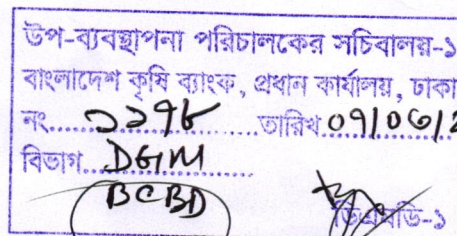 উপ-ব্যবস্থাপনা পরিচালকের সচিবালয়-১
বাংলাদেশ কৃষি ব্যাংক, প্রধান কার্যালয়, ঢাকা
নং.....১১৭৮.....তারিখ.০৭/০৬/২
বিভাগ..DGM
BCBD
ডিএমডি-১